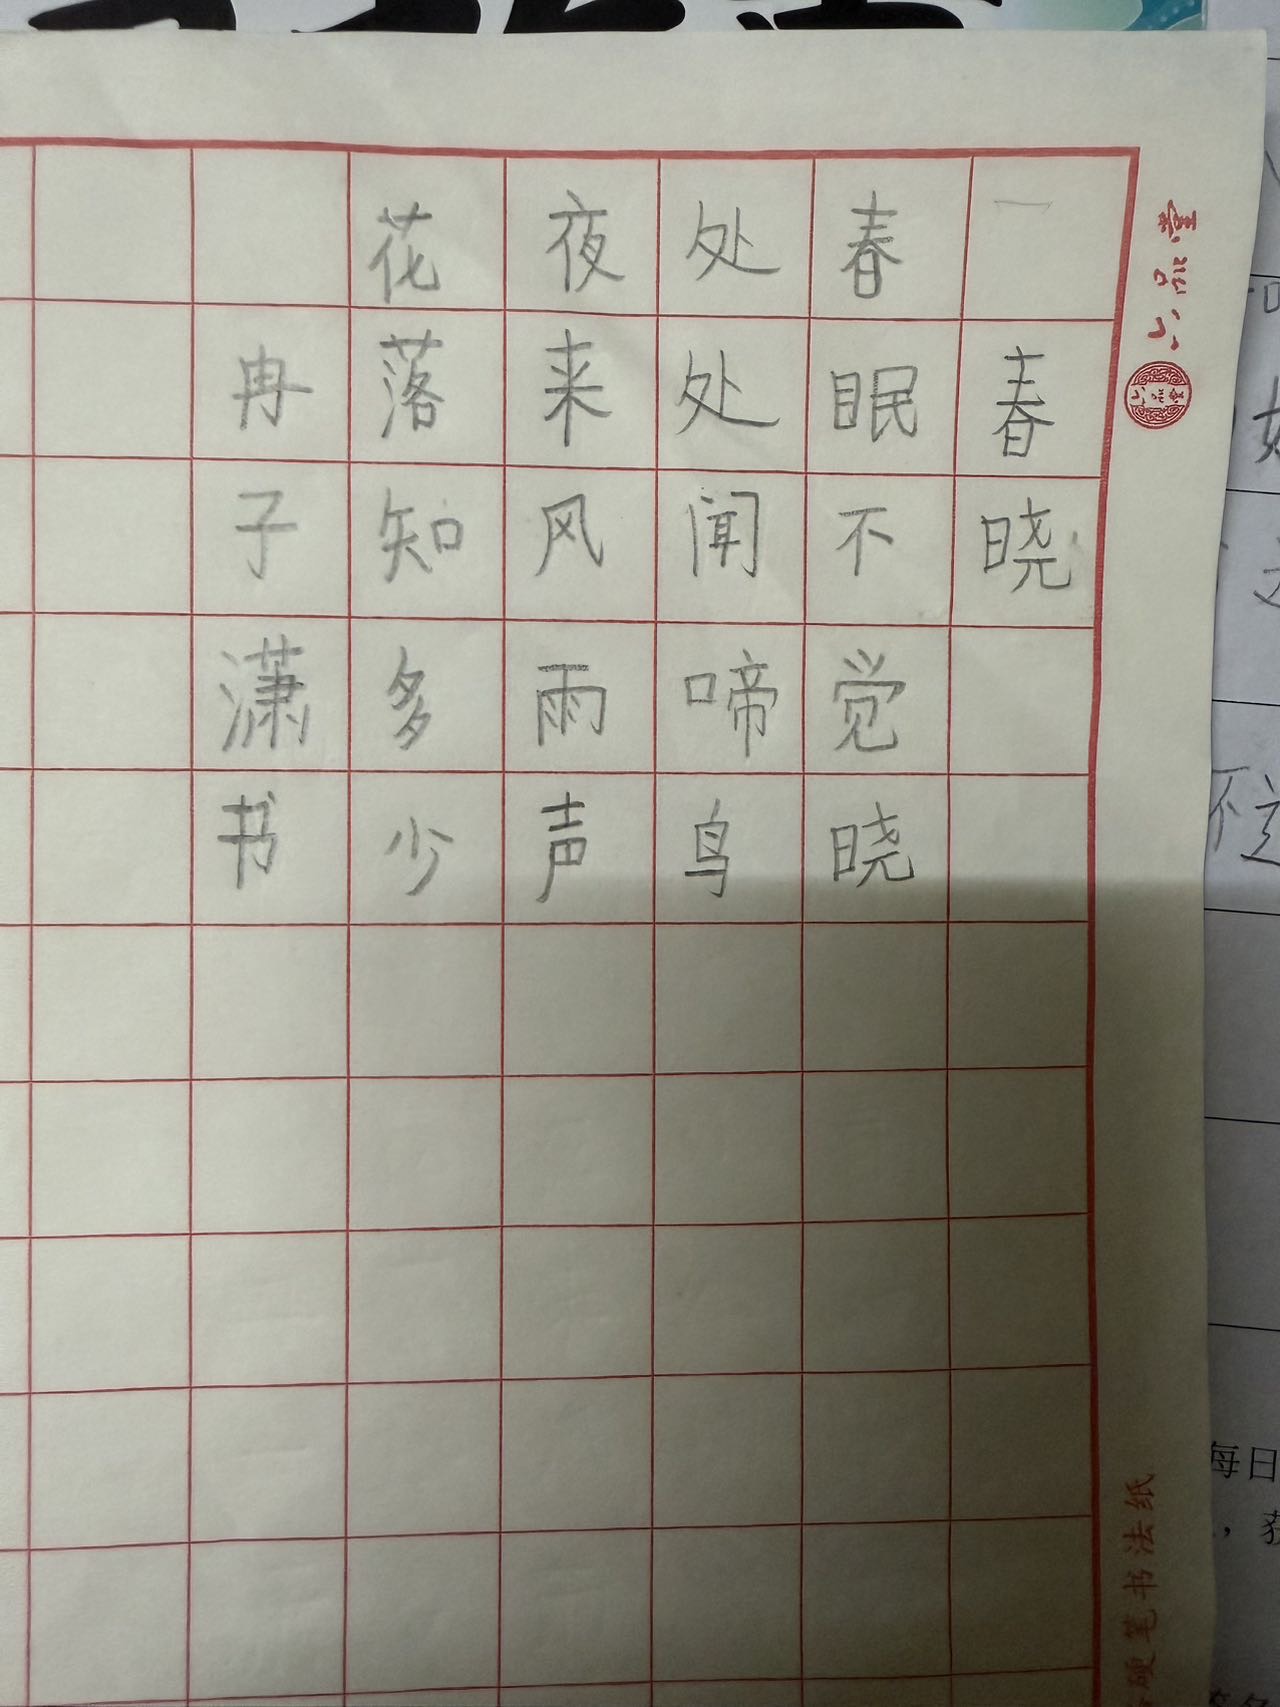 春晓
春眠不觉晓
处处闻啼鸟
夜来风雨声
花落知多少
冉子潇书
六品堂
六品堂
硬笔书法纸
每日